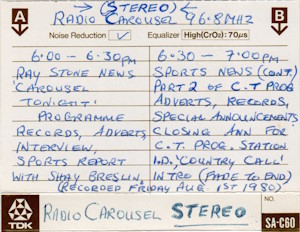 →(STEREO)←
RADIO CAROUSEL 96.8MHz
A
B
Noise Reduction ✓
Equalizer High(CrO2): 70µs
6:00 - 6:30PM
RAY STONE NEWS
'CAROUSEL
TONIGHT'
PROGRAMME
RECORDS, ADVERTS,
INTERVIEW,
SPORTS REPORT
WITH SHAY BRESLIN.
6:30 - 7:00PM
SPORTS NEWS (CONT.)
PART 2 OF C.T PROG
ADVERTS, RECORDS,
SPECIAL ANNOUNCEMENTS
CLOSING ANN FOR
C.T. PROG. STATION
I.D. 'COUNTRY CALL'
INTRO (FADE TO END)
(RECORDED FRIDAY AUG 1ST 1980)
TDK
RADIO CAROUSEL STEREO
NO.
SA-C60